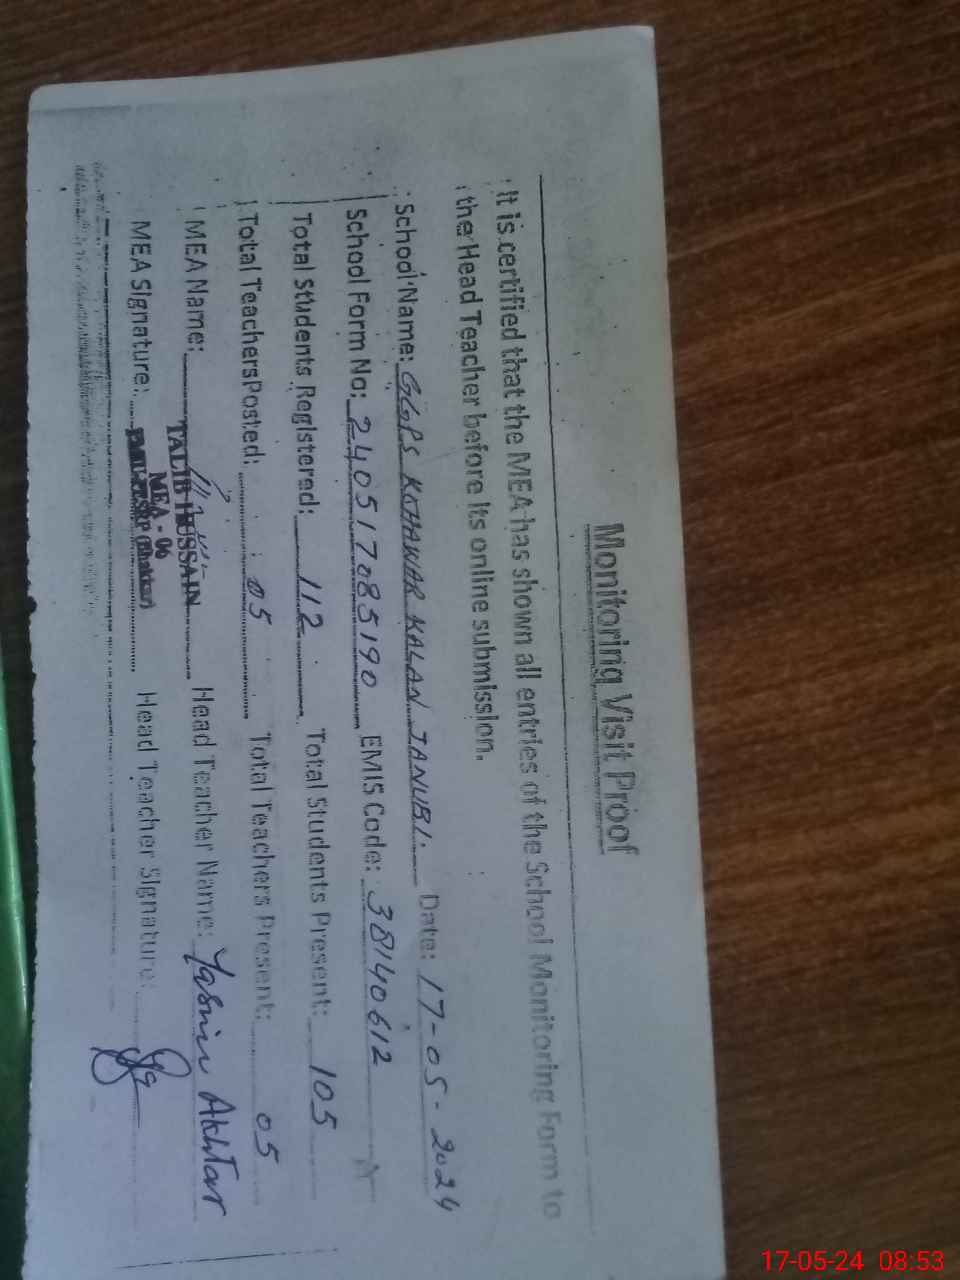 Monitoring Visit Proof
It is certified that the MEA has shown all entries of the School Monitoring Form to
the Head Teacher before its online submission.
School Name: GGPS KOHAWAR KALAN JANUBI. Date: 17-05-2024
School Form No: 240517085190 EMIS Code: 38140612
Total Students Registered: 112 Total Students Present: 105
Total Teachers Posted: 05 Total Teachers Present: 05
MEA Name: TALIB HUSSAIN Head Teacher Name: Yasmin Akhtar
MEA - 06
MEA Signature: (Bhakkar) Head Teacher Signature:
17-05-24 08:53